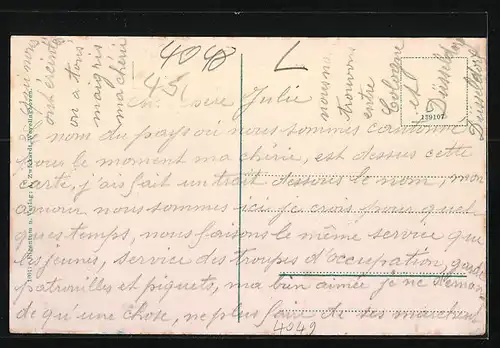 4048
L
45
Julie
nom du pays où nous sommes cantonné
pous le moment ma chérie, est dessus cette
carte, j'ais fait un trait dessous le nom, mon
amour nous sommes ici je crois pour quel
ques temps, nous faisons le même service que
les jeunes, service des troupes d'occupation, garde
patrouilles et piquets, ma bien aimée je ne deman
de qu'une chose, ne plus faire de ses marches
4049
nous nous
trouvons
entre
Cologne
et
Düsseldorf
Düsseldorf
139107
on a tous
maigris
ma chérie